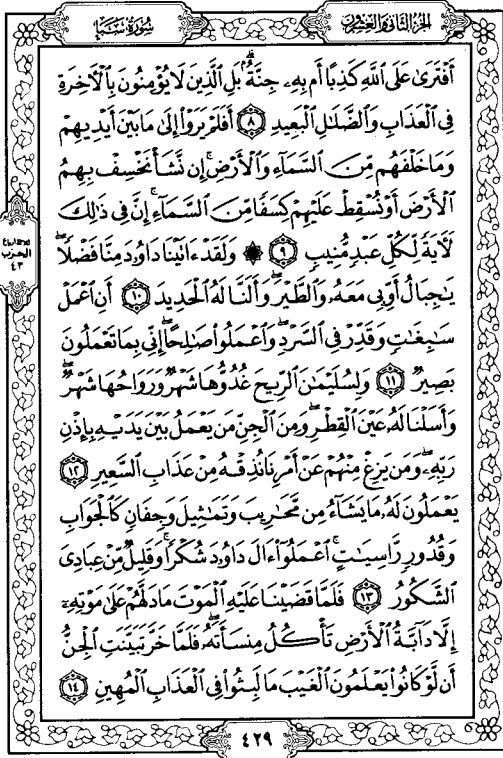 الجزء الثاني والعشرون
سورة سبأ
أَفْتَرَىٰ عَلَى ٱللَّهِ كَذِبًا أَم بِهِۦ جِنَّةٌۗ بَلِ ٱلَّذِينَ لَا يُؤْمِنُونَ بِٱلْأَخِرَةِ
فِى ٱلْعَذَابِ وَٱلضَّلَٰلِ ٱلْبَعِيدِ ٨ أَفَلَمْ يَرَوْا۟ إِلَىٰ مَا بَيْنَ أَيْدِيهِمْ
وَمَا خَلْفَهُم مِّنَ ٱلسَّمَآءِ وَٱلْأَرْضِۚ إِن نَّشَأْ نَخْسِفْ بِهِمُ
ٱلْأَرْضَ أَوْ نُسْقِطْ عَلَيْهِمْ كِسَفًا مِّنَ ٱلسَّمَآءِۚ إِنَّ فِى ذَٰلِكَ
لَأٓيَةً لِّكُلِّ عَبْدٍ مُّنِيبٍ ٩ ۞ وَلَقَدْ ءَاتَيْنَا دَاوُۥدَ مِنَّا فَضْلًاۖ
يَٰجِبَالُ أَوِّبِى مَعَهُۥ وَٱلطَّيْرَۖ وَأَلَنَّا لَهُ ٱلْحَدِيدَ ١٠ أَنِ ٱعْمَلْ
سَٰبِغَٰتٍ وَقَدِّرْ فِى ٱلسَّرْدِۖ وَٱعْمَلُوا۟ صَٰلِحًاۖ إِنِّى بِمَا تَعْمَلُونَ
بَصِيرٌ ١١ وَلِسُلَيْمَٰنَ ٱلرِّيحَ غُدُوُّهَا شَهْرٌ وَرَوَاحُهَا شَهْرٌۖ
وَأَسَلْنَا لَهُۥ عَيْنَ ٱلْقِطْرِۖ وَمِنَ ٱلْجِنِّ مَن يَعْمَلُ بَيْنَ يَدَيْهِ بِإِذْنِ
رَبِّهِۦۖ وَمَن يَزِغْ مِنْهُمْ عَنْ أَمْرِنَا نُذِقْهُ مِنْ عَذَابِ ٱلسَّعِيرِ ١٢
يَعْمَلُونَ لَهُۥ مَا يَشَآءُ مِن مَّحَٰرِيبَ وَتَمَٰثِيلَ وَجِفَانٍ كَٱلْجَوَابِ
وَقُدُورٍ رَّاسِيَٰتٍۚ ٱعْمَلُوٓا۟ ءَالَ دَاوُۥدَ شُكْرًاۚ وَقَلِيلٌ مِّنْ عِبَادِىَ
ٱلشَّكُورُ ١٣ فَلَمَّا قَضَيْنَا عَلَيْهِ ٱلْمَوْتَ مَا دَلَّهُمْ عَلَىٰ مَوْتِهِۦٓ
إِلَّا دَآبَّةُ ٱلْأَرْضِ تَأْكُلُ مِنسَأَتَهُۥۖ فَلَمَّا خَرَّ تَبَيَّنَتِ ٱلْجِنُّ
أَن لَّوْ كَانُوا۟ يَعْلَمُونَ ٱلْغَيْبَ مَا لَبِثُوا۟ فِى ٱلْعَذَابِ ٱلْمُهِينِ ١٤
الحزب
٤٣
٤٢٩